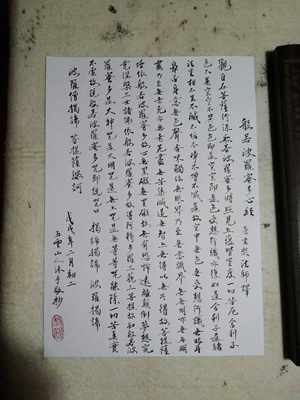 般若波羅蜜多心經 唐玄奘法師譯
觀自在菩薩行深般若波羅蜜多時照見五蘊皆空度一切苦厄舍利子
色不異空空不異色色即是空空即是色受想行識亦復如是舍利子是諸
法空相不生不滅不垢不淨不增不減是故空中無色無受想行識無眼耳
鼻舌身意無色聲香味觸法無眼界乃至無意識界無無明亦無無明
盡乃至無老死亦無老死盡無苦集滅道無智亦無得以無所得故菩提薩
埵依般若波羅蜜多故心無罣礙無罣礙故無有恐怖遠離顛倒夢想究
竟涅槃三世諸佛依般若波羅蜜多故得阿耨多羅三藐三菩提故知般若波
羅蜜多是大神咒是大明咒是無上咒是無等等咒能除一切苦真實
不虛故說般若波羅蜜多咒即說咒曰 揭諦揭諦 波羅揭諦
波羅僧揭諦 菩提薩婆訶
戊戌年二月初二